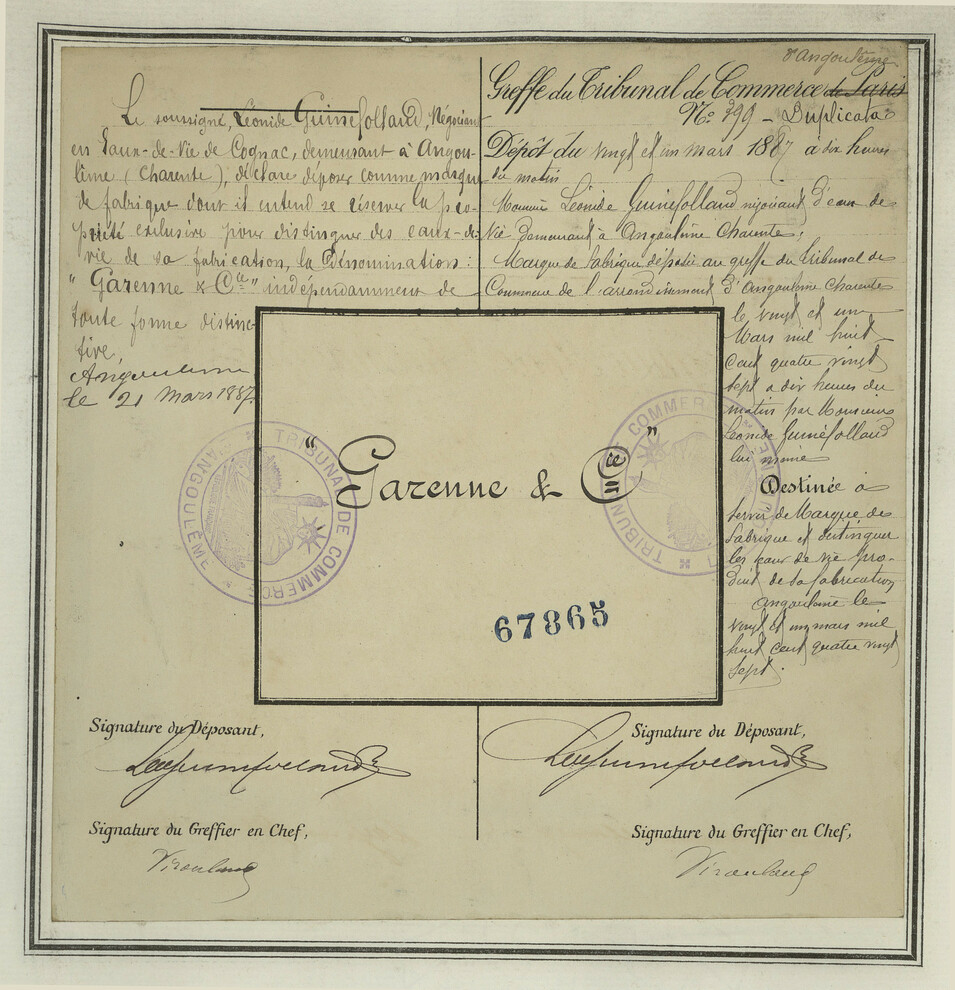 Le soussigné, Léonide Guinefolland, Négociant
en Eaux-de-Vie de Cognac, demeurant à Angou-
lême (Charente), déclare déposer comme marque
de fabrique dont il entend se réserver la pro-
priété exclusive pour distinguer des eaux-de-
vie de sa fabrication, la Dénomination :
"Garenne & Cie" indépendamment de
toute forme distinc-
tive.
Angoulême
le 21 Mars 1887
d'Angoulême
Greffe du Tribunal de Commerce de Paris
No 399 - Duplicata
Dépôt du vingt et un mars 1887 à dix heures
du matin
Monsieur Léonide Guinefolland négociant d'eau de
Vie demeurant à Angoulême Charente,
Marque de fabrique déposée au greffe du tribunal de
Commerce de l'arrondissement d'Angoulême Charente
le vingt et un
Mars mil huit
cent quatre vingt
sept à dix heures du
matin par Monsieur
Léonide Guinefolland
lui même
Destinée à
servir de Marque de
fabrique et distinguer
les eaux de vie pro-
duit de sa fabrication
Angoulême le
vingt et un mars mil
huit cent quatre vingt
sept.
"Garenne & Cie"
TRIBUNAL DE COMMERCE
ANGOULÊME
TRIBUNAL DE COMMERCE
67865
Signature du Déposant,
Signature du Déposant,
Signature du Greffier en Chef,
Signature du Greffier en Chef,